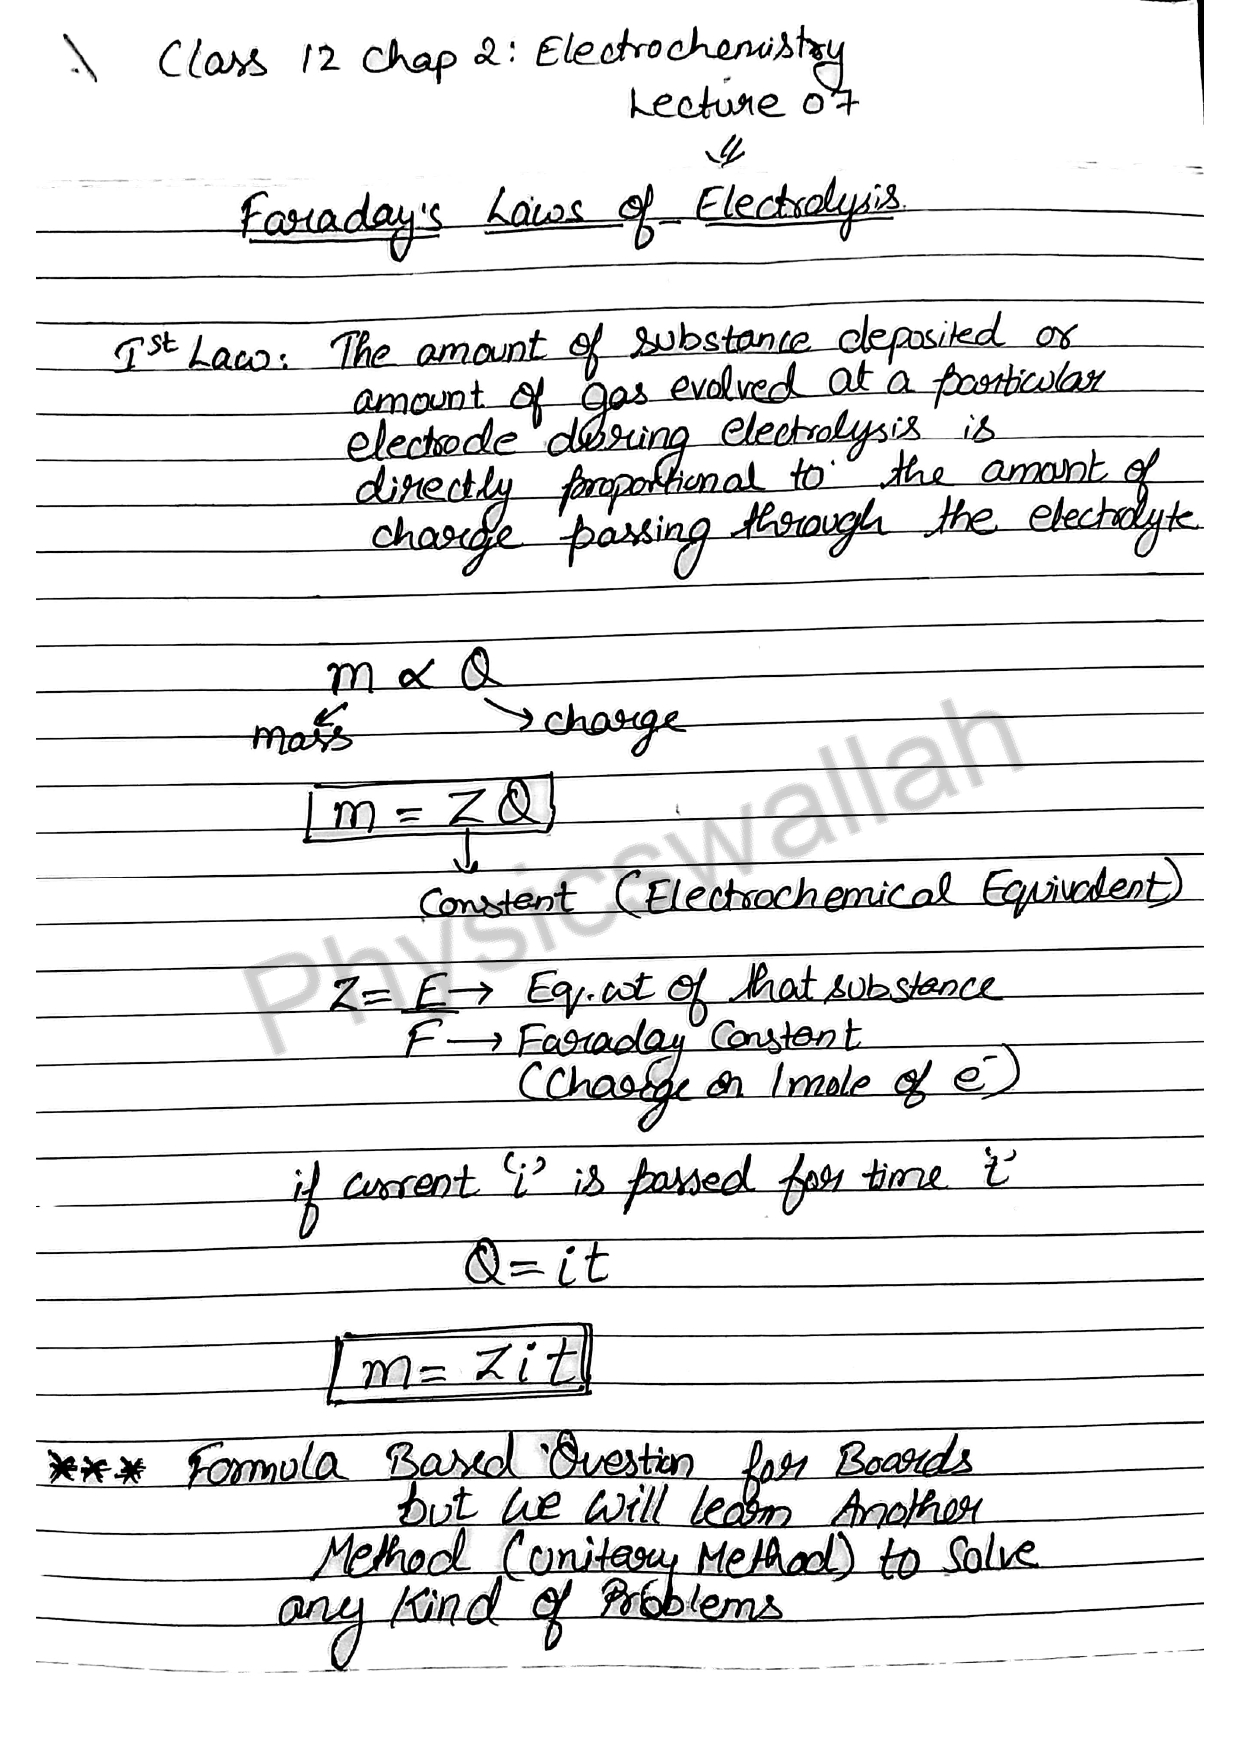 Class 12 Chap 2: Electrochemistry
Lecture 07
Faraday's Laws of Electrolysis.
Ist Law: The amount of substance deposited or
amount of gas evolved at a particular
electrode during electrolysis is
directly proportional to the amount of
charge passing through the electrolyte
m ∝ Q
mass
charge
m = ZQ
Constent (Electrochemical Equivalent)
Z = E → Eq. wt of that substance
F → Faraday Constant
(Charge on 1 mole of e⁻)
if current 'i' is passed for time 't'
Q = it
m = Zit
*** Formula Based Question for Boards
but we will learn Another
Method (Unitary Method) to Solve
any Kind of Problems
Physicswallah